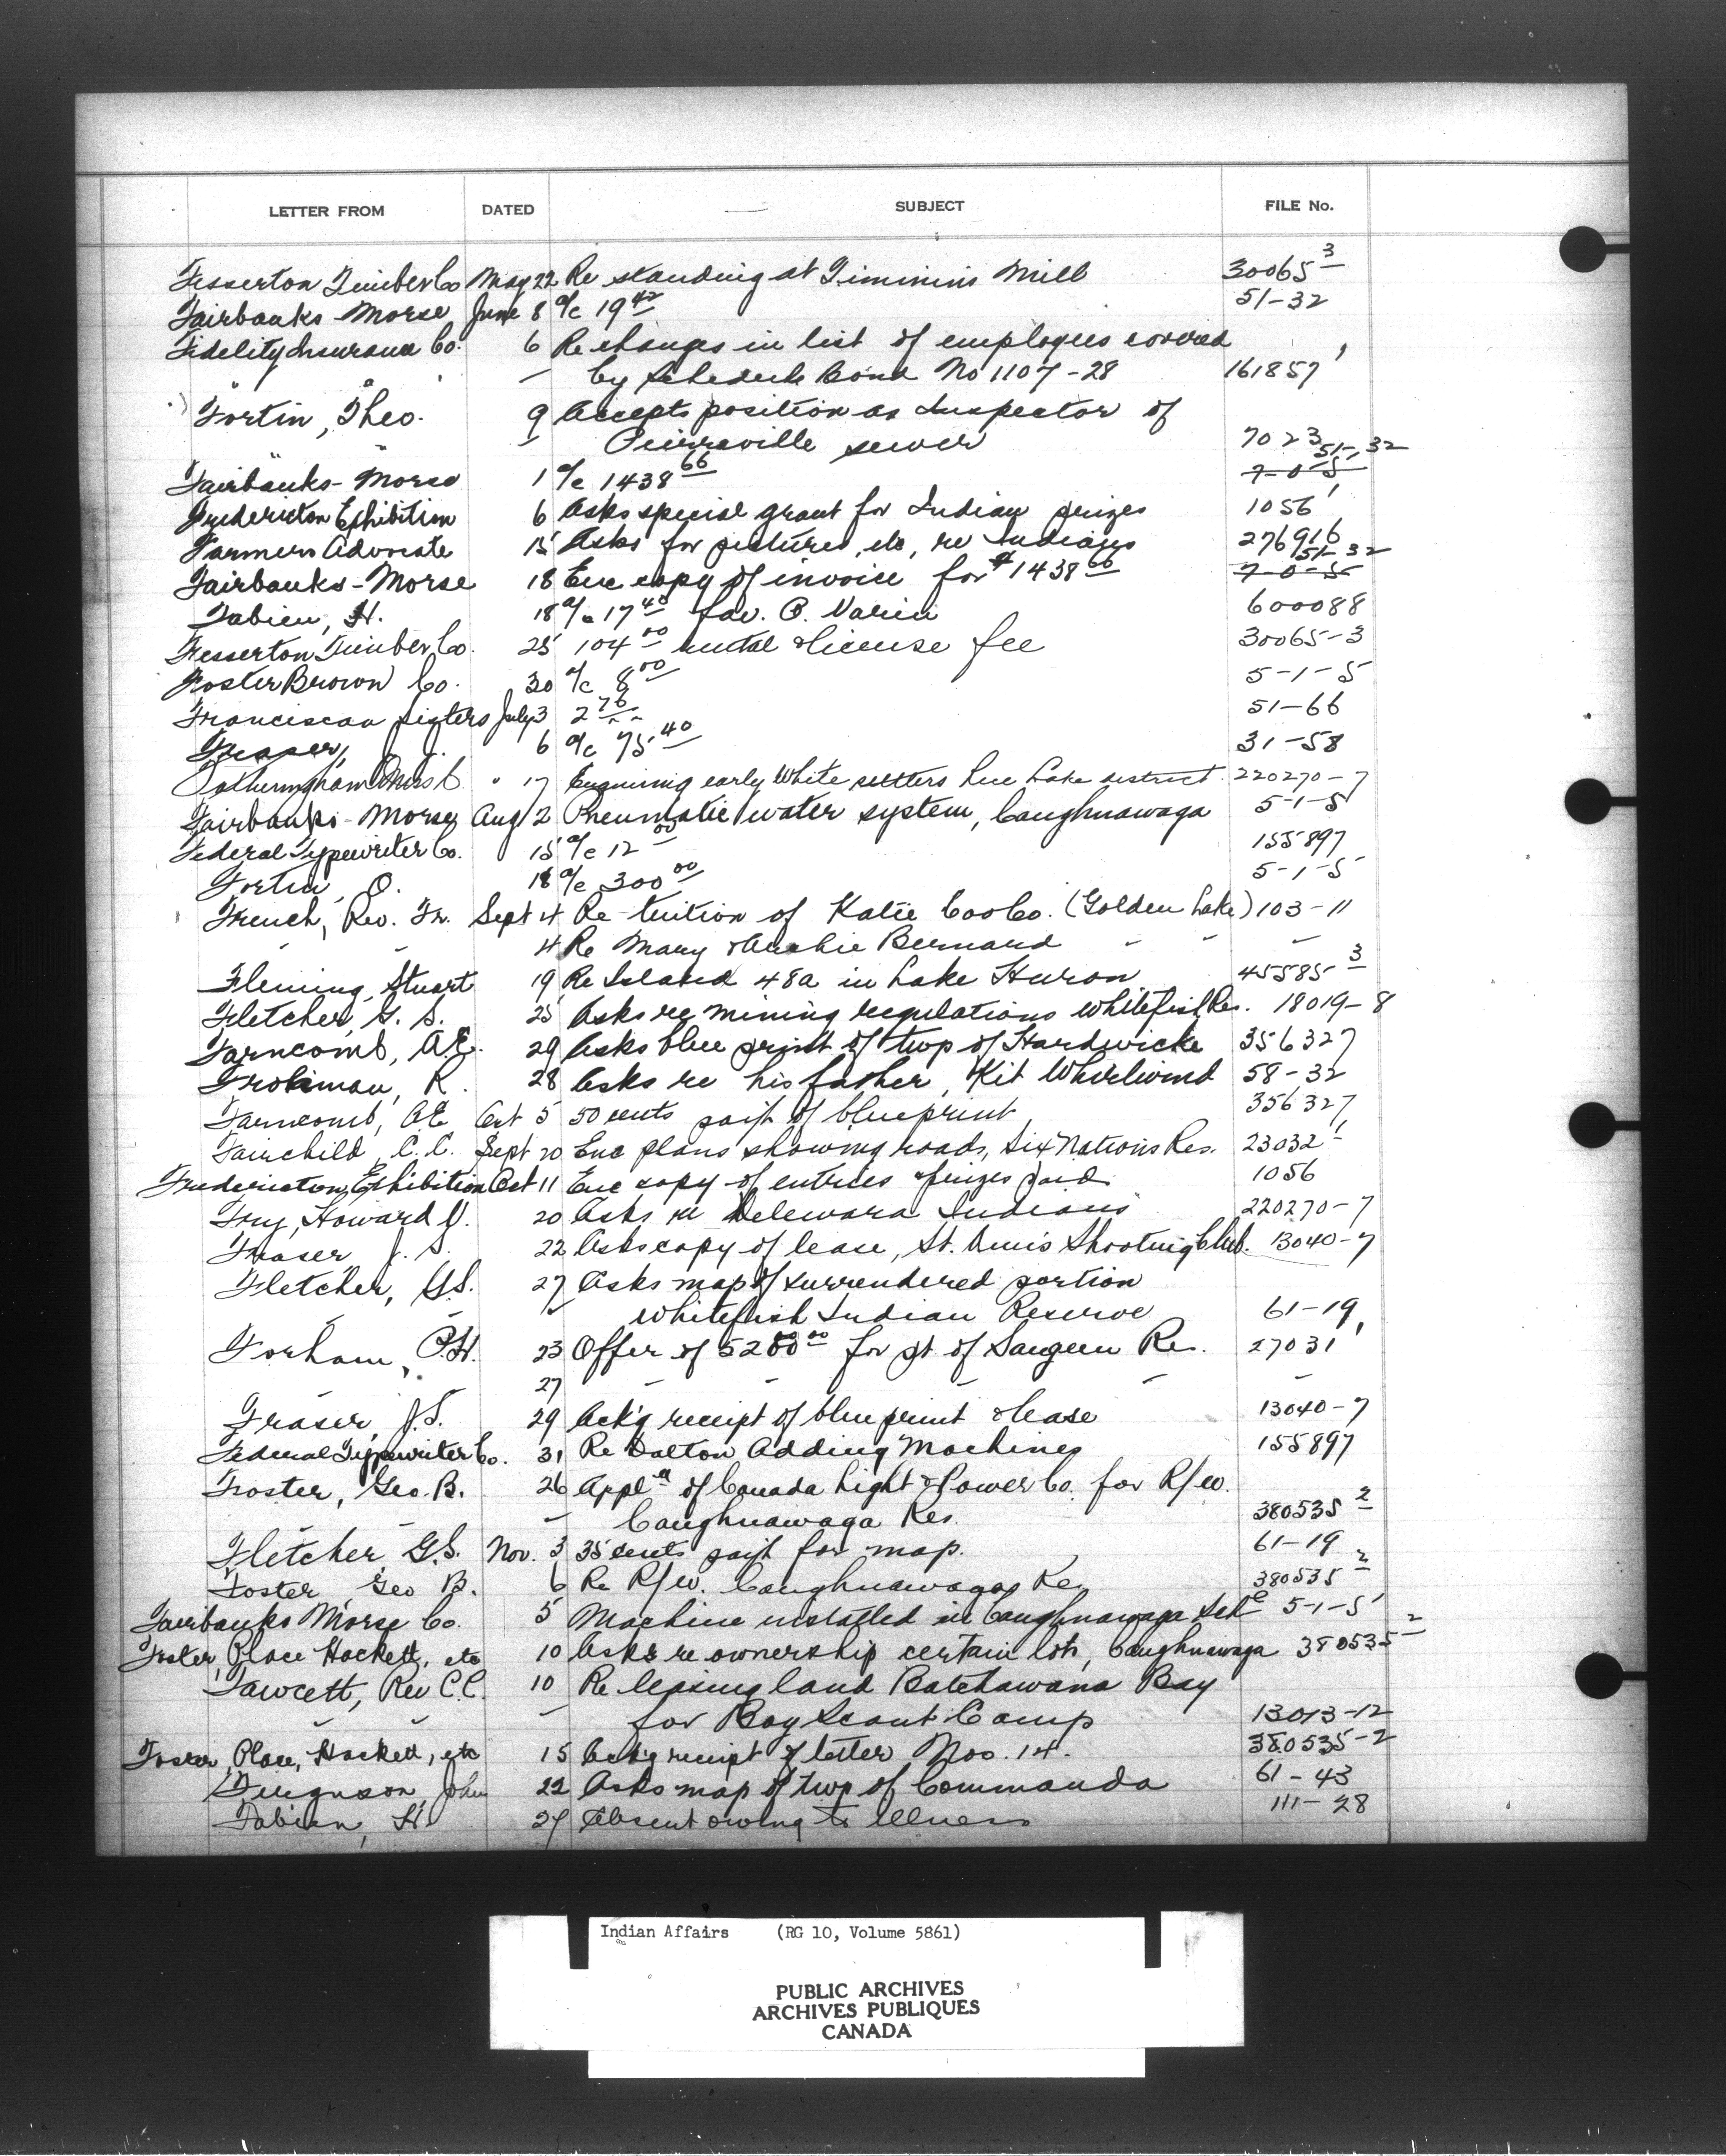 LETTER FROM DATED SUBJECT FILE No.
Fesserton Timber Co May 22 Re standing at Timmins Mill 30065-3
Fairbanks-Morse June 8 a/c 19.42 51-32
Fidelity Insurance Co. 6 Re changes in list of employees covered
by Schedule Bond No 1107-28 161857-1
Fortin, Theo. 9 Accepts position as Inspector of
Pierreville sewer 7023
Fairbanks-Morse 1 a/c 1438.66 7-0-5 51-32
Fredericton Exhibition 6 Asks special grant for Indian prizes 1056
Farmers Advocate 15 Asks for pictures, etc, re Indians 276916
Fairbanks-Morse 18 Enc copy of invoice for $1438.66 7-0-5 51-32
Fabien, H. 18 a/c 17.40 fav. 600088
Fesserton Timber Co. 25 104.00 rental & license fee 30065-3
Foster Brown Co. 30 a/c 8.00 5-1-5
Franciscan Sisters July 3 2.76 51-66
Fraser, J. 6 a/c 75.40 31-58
Fotheringham Miss C. " 17 Enquiring early White settlers district. 220270-7
Fairbanks-Morse Aug 2 Pneumatic water system, Caughnawaga 5-1-5
Federal Typewriter Co. 15 a/c 12.00 155897
Fortin, O. 18 a/c 300.00 5-1-5
French, Rev. Fr. Sept 4 Re tuition of Katie CooCo. (Golden Lake) 103-11
" " 4 Re Mary & Archie Bernard " " "
Fleming, Stuart 19 Re Island 48a in Lake Huron 45585-3
Fletcher, G. S. 25 Asks re mining regulations Whitefish Res. 18019-8
Farncomb, A.E. 29 Asks blue print of twp of Hardwicke 356327
Frobman, R. 28 Asks re his father, Kit Whirlwind 58-32
Farncomb, A.E. Oct 5 50 cents paymt of blueprint 356327
Fairchild, C.C. Sept 20 Enc plans showing roads, Six Nations Res. 23032-1
Fredericton Exhibition Oct 11 Enc copy of entries & prizes paid 1056
Fry, Howard J. 20 Asks re Deleware Indians 220270-7
Fraser, J. S. 22 Asks copy of lease, St. Denis Shooting Club. 13040-7
Fletcher, G.S. 27 Asks map of surrendered portion
Whitefish Indian Reserve 61-19
Forham, P.H. 23 Offer of 5200.00 for pt of Saugeen Res. 27031-1
27 " " " " "
Fraser, J.S. 29 Ack'g receipt of blueprint & lease 13040-7
Federal Typewriter Co. 31 Re Dalton Adding Machines 155897
Foster, Geo. B. 26 Appln of Canada Light & Power Co. for R/W.
" " " Caughnawaga Res. 380535-2
Fletcher, G.S. Nov. 3 35 cents paymt for map. 61-19
Foster, Geo B. 6 Re R/W. Caughnawaga Res 380535-2
Fairbanks Morse Co. 5 Machine installed in Caughnawaga Schl 5-1-5
Foster, Place Hackett, etc 10 Asks re ownership certain lots, Caughnawaga 380535-2
Fawcett, Rev C.C. 10 Re leasing land Batchawana Bay
" " " for Boy Scout Camp 13013-12
Foster, Place, Hackett, etc 15 Ack'g receipt of letter Nov. 14. 380535-2
Ferguson, John 22 Asks map of twp of Commanda 61-43
Fabien, H. 27 Absent owing to illness 111-28
Indian Affairs (RG 10, Volume 5861)
PUBLIC ARCHIVES
ARCHIVES PUBLIQUES
CANADA